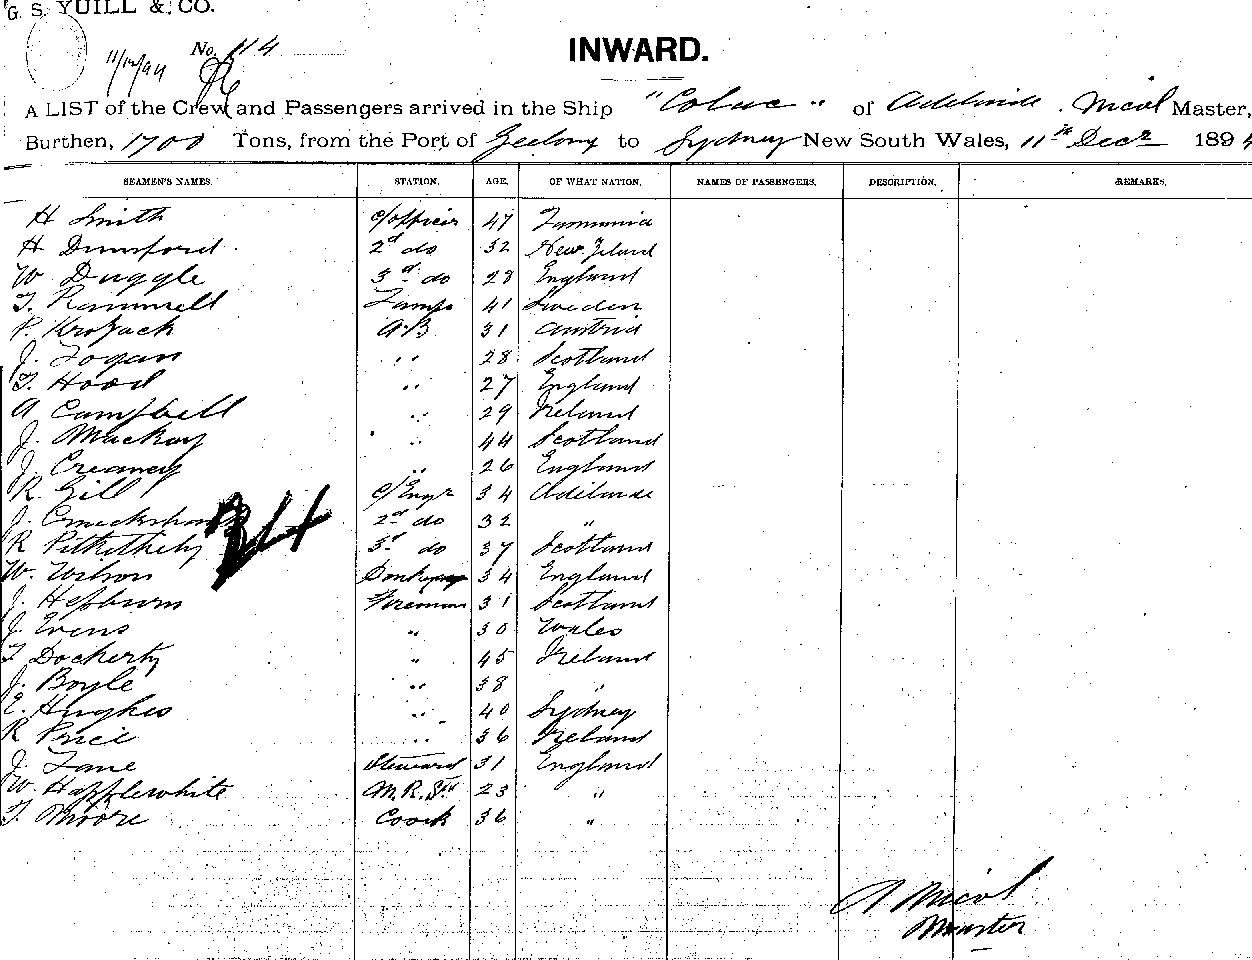 G. S. YUILL & CO.
No. 114
11/12/94
INWARD.
A LIST of the Crew and Passengers arrived in the Ship "Colac" of Adelaide. Nicol Master,
Burthen, 1700 Tons, from the Port of Geelong to Sydney New South Wales, 11th Decr 1894
SEAMEN'S NAMES. STATION. AGE. OF WHAT NATION. NAMES OF PASSENGERS. DESCRIPTION. REMARKS.
H Smith c/officer 47 Tasmania
H Dunsford 2d do 32 New Zeland
W Duggle 3rd do 28 England
T. Rammsell Lamps 41 Sweden
P. Krozack A.B 31 Austria
J. Logan " 28 Scotland
T. Hood " 27 England
A Campbell " 29 Ireland
J. Mackay " 44 Scotland
J. Creaney " 26 England
R. Gill c/Engr 34 Adelaide
J. Cruickshank 2nd do 32 "
R Pitkethely 3rd do 37 Scotland
W. Wilson Donkeyman 34 England
J. Hepburn Fireman 31 Scotland
J. Evens " 30 Wales
T Dockerty " 45 Ireland
J. Boyle " 38 "
E. Hughes " 40 Sydney
R Price " 36 Ireland
J. Lane Steward 31 England
W. Happlewhite M.R.Std 23 "
T. Moore Coock 36 "
24
A Nicol
Master